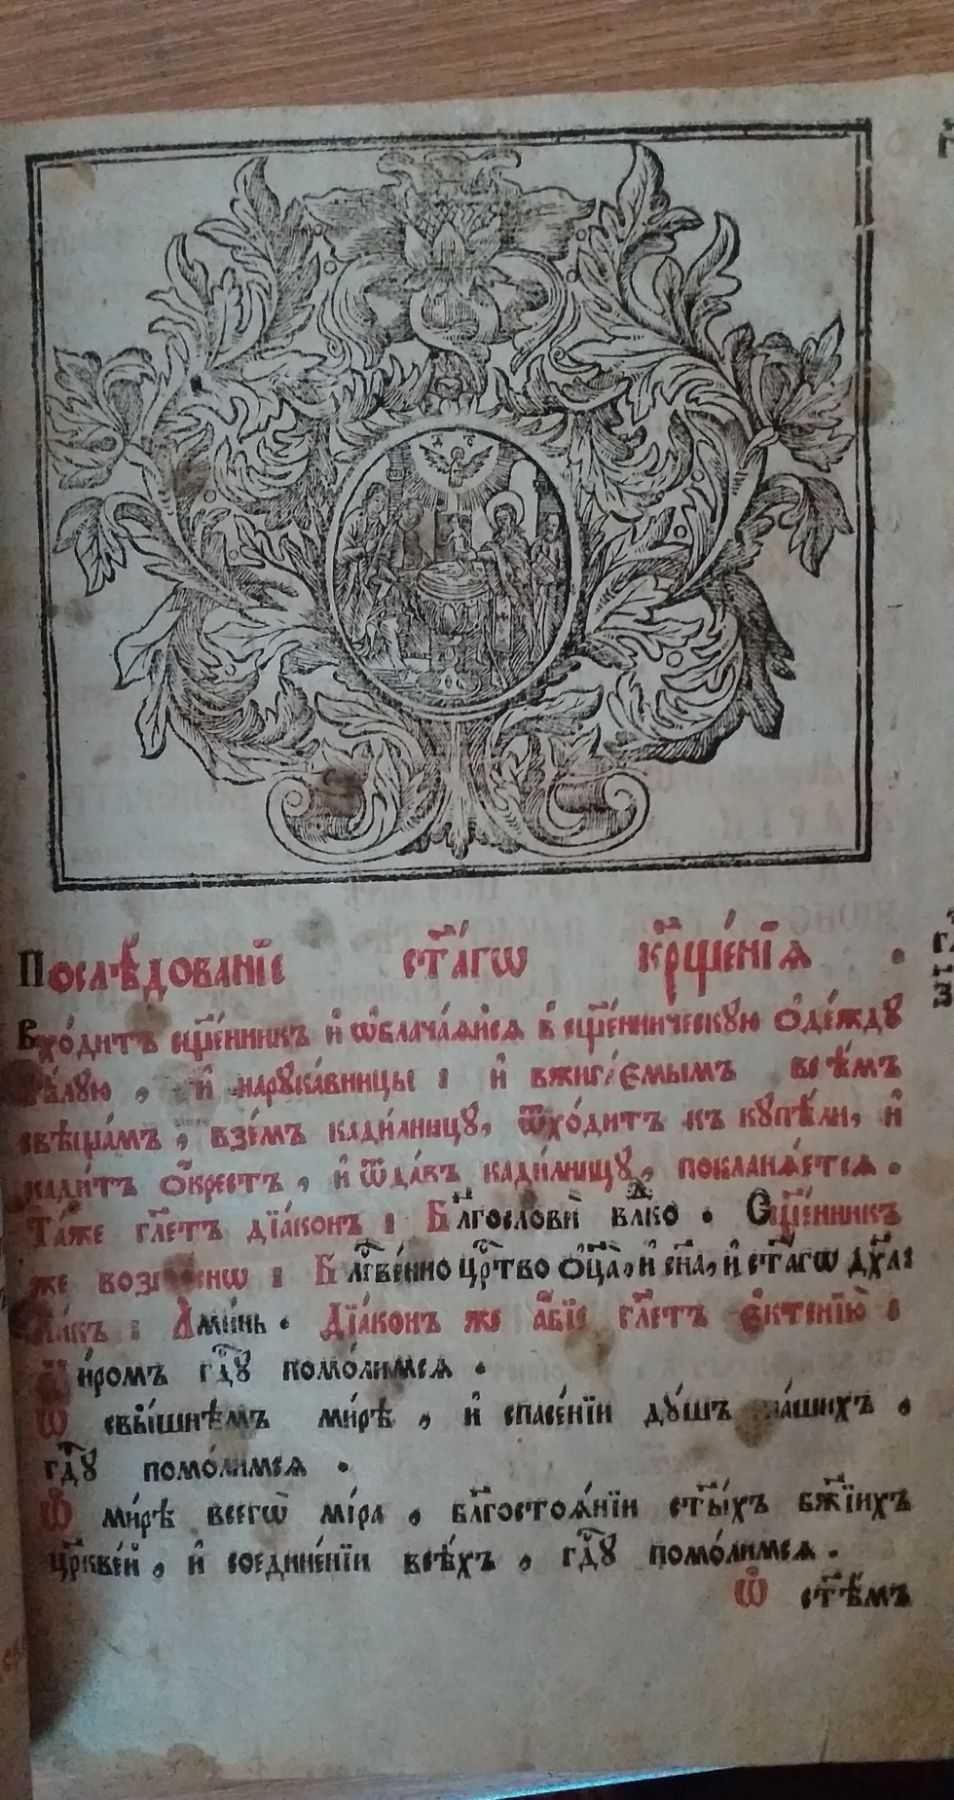 Послѣ́дованїе ст҃а́гѡ кр҃ще́нїѧ .
Вхо́дитъ сщ҃е́нникъ и҆ ѡ҆блачаѧйсѧ в̾ сщ҃е́нническꙋю ѻ҆де́ждꙋ
бѣ́лꙋю , и҆ нарꙋка́вницы : и҆ вжига́ємымъ всѣ́мъ
свѣща́мъ , взе́мъ кади́лницꙋ, ѿхо́дитъ къ кꙋпѣ́ли, и҆
кади́тъ ѻ҆́крестъ , и҆ ѿда́въ кади́лницꙋ , покланѧ́етсѧ .
Та́же гл҃етъ дїа́конъ : Бл҃гослови̂ влⷣко . Сщ҃е́нникъ
же возгл҃ше́нѡ : Бл҃гⷭ҇ве́нно црⷭ҇тво ѻ҆ц҃а̀, и҆ сн҃а, и҆ ст҃а́гѡ дх҃а:
Ли́къ : А҆ми́нь . Дїа́конъ же а҆́бїе гл҃етъ є҆ктенїю̀ :
Ми́ромъ гдⷭ҇ꙋ помо́лимсѧ .
Ѡ҆ свы́шнѣмъ ми́рѣ , и҆ спасе́нїи дꙋ́шъ на́шихъ ,
гдⷭ҇ꙋ помо́лимсѧ .
Ѡ҆ ми́рѣ всегѡ̀ мі́ра , бл҃госто́ѧнїи ст҃ы́хъ бж҃їихъ
цр҃кве́й , и҆ соедине́нїи всѣ́хъ , гдⷭ҇ꙋ помо́лимсѧ .
Ѡ҆ ст҃ѣ́мъ